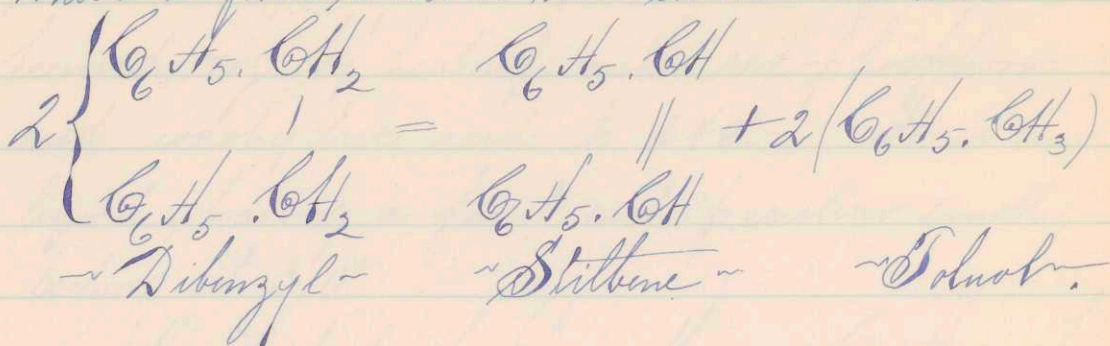 2{ C₆H₅.CH₂     C₆H₅.CH
| = || + 2(C₆H₅.CH₃)
C₆H₅.CH₂     C₆H₅.CH
~Dibenzyl~     ~Stilbene~     ~Toluol~.